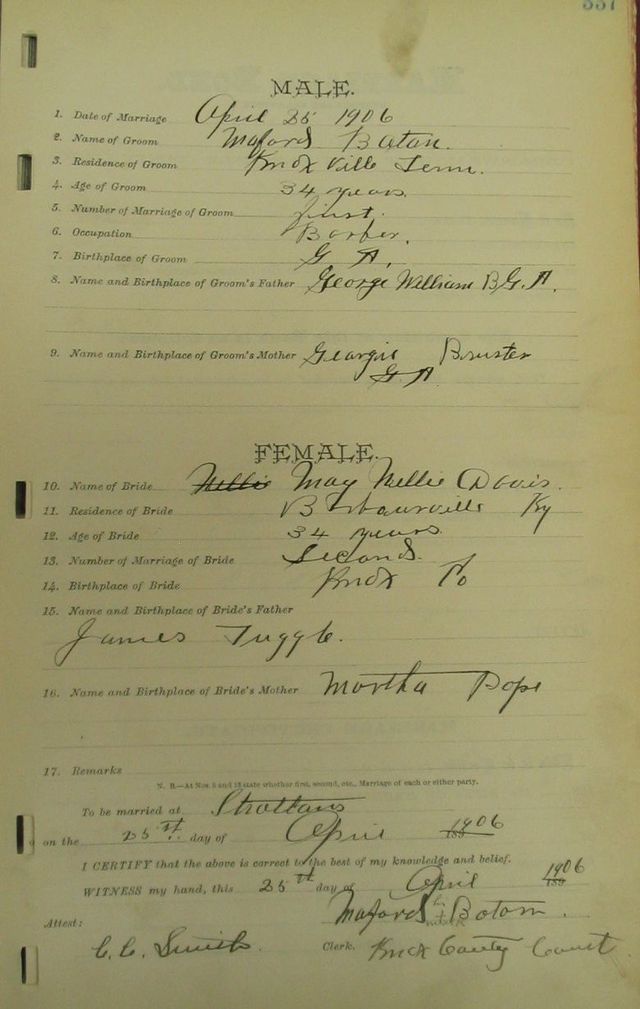 337
MALE.
1. Date of Marriage April 25 1906
2. Name of Groom Maford Botan.
3. Residence of Groom Knoxville Tenn.
4. Age of Groom 34 years
5. Number of Marriage of Groom first.
6. Occupation Barber,
7. Birthplace of Groom G A,
8. Name and Birthplace of Groom's Father George William B G. A.
9. Name and Birthplace of Groom's Mother Georgie Bruster
G A
FEMALE.
10. Name of Bride Nellie May Nellie Davis.
11. Residence of Bride Barbourville Ky
12. Age of Bride 34 years
13. Number of Marriage of Bride Second.
14. Birthplace of Bride Knox Co
15. Name and Birthplace of Bride's Father
James Tuggle.
16. Name and Birthplace of Bride's Mother Martha Pope
17. Remarks
N. B.—At Nos. 5 and 13 state whether first, second, etc., Marriage of each or either party.
To be married at Strattans
on the 25th day of April 1906
I CERTIFY that the above is correct to the best of my knowledge and belief.
WITNESS my hand, this 25th day of April 1906
Maford + Botom.
mark
Attest:
C. C. Smith. Clerk. Knox County Court